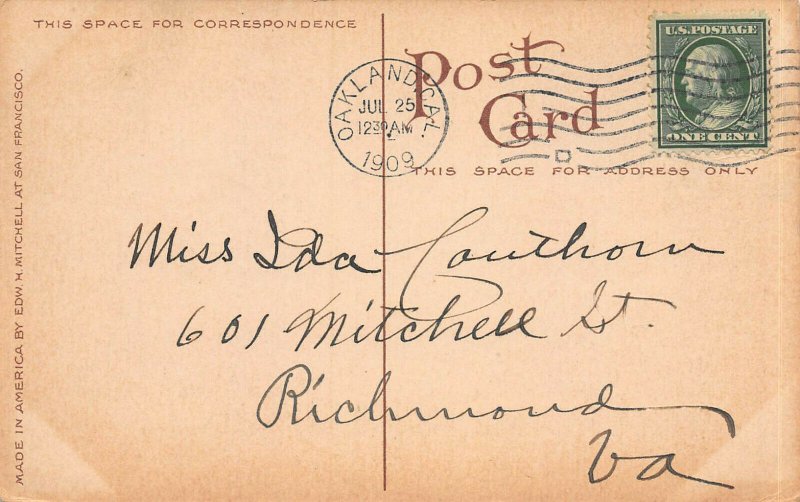 THIS SPACE FOR CORRESPONDENCE
Post
Card
U.S. POSTAGE
ONE CENT
OAKLAND, CAL.
JUL 25
1230 AM
1909
THIS SPACE FOR ADDRESS ONLY
Miss Ida Couthorn
601 Mitchell St.
Richmond
Va
MADE IN AMERICA BY EDW. H. MITCHELL AT SAN FRANCISCO.